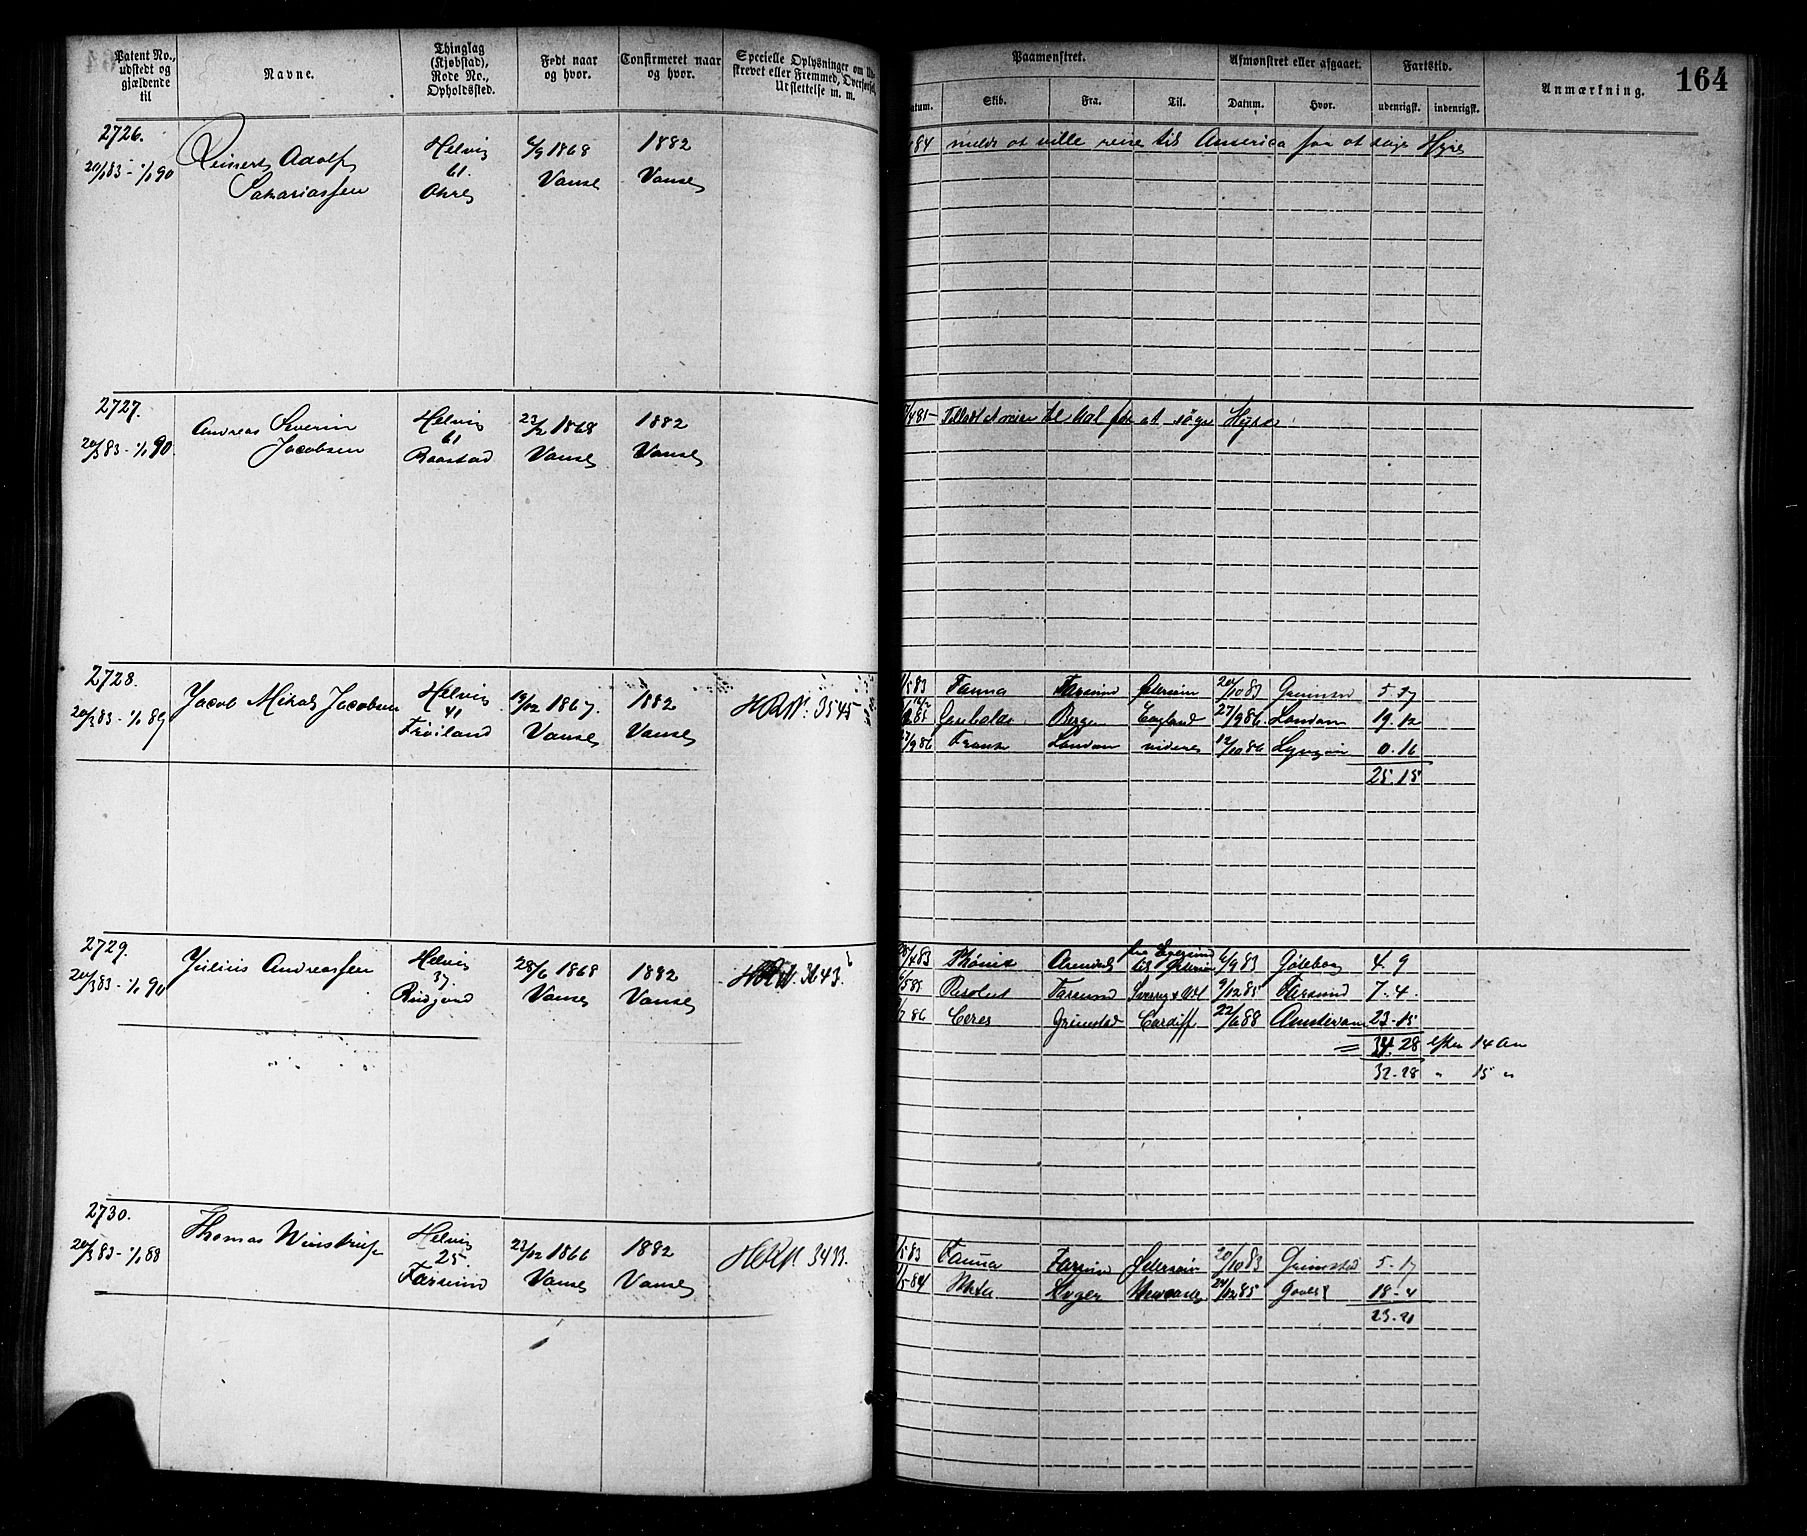 Patent No., udstedt og gjældende til
Navne.
Thinglag (Kjøbstad), Rode No., Opholdssted.
Født naar og hvor.
Confirmeret naar og hvor.
Specielle Oplysninger om
strevet eller Fremmed, Overførsel,
Utslettelse m. m.
Paamønstret.
Afmønstret eller afgaaet.
Fartstid.
Anmærkning.
164
Datum.
Skib.
Fra.
Til.
Datum.
Hvor.
udenrigsk.
indenrigsk.
2726.
20/3 83 - 1/1 90
Reinert Adolf
Sakariassen
Helvig
61.
Ohre
6/9 1868
Vanse
1882
Vanse
84 melds at ville reise til America for at søge Hyre
2727.
20/3 83 - 1/1 90
Andreas Severin
Jacobsen
Helvig
61
Raastad
22/2 1868
Vanse
1882
Vanse
Tilladt at reise til for at søge Hyre
2728.
20/3 83 - 1/1 89
Jacob Mikal Jacobsen
Helvig
41
Frøiland
19/12 1867.
Vanse
1882
Vanse
3545
5 83 Fauna Farsund 20/10 83 Grimstad 5. 17
85 Bergen England 27/9 86 London 19. 12
9 86 London videre 12/10 86 Lyngør 0. 16
25. 15
2729.
20/3 83 - 1/1 90
Julius Andreassen
Helvig
37.
28/6 1868
Vanse
1882
Vanse
3643
4 83 Fønix Arendal 6/9 83 Gøteborg 4. 9
5 85 Resolut Farsund 9/12 85 7. 4.
7 86 Ceres Grimstad Cardiff 22/6 88 Amsterdam 23. 15
34. 28 efter 14 Aar
32. 28 " 15 "
2730.
20/3 83 - 1/1 88
Thomas Winstrup
Helvig
25.
Farsund
22/12 1866
Vanse
1882
Vanse
3433.
5 83 Fauna Farsund 20/10 83 Grimstad 5. 17
5 84 24/12 85 18 - 4
23. 21